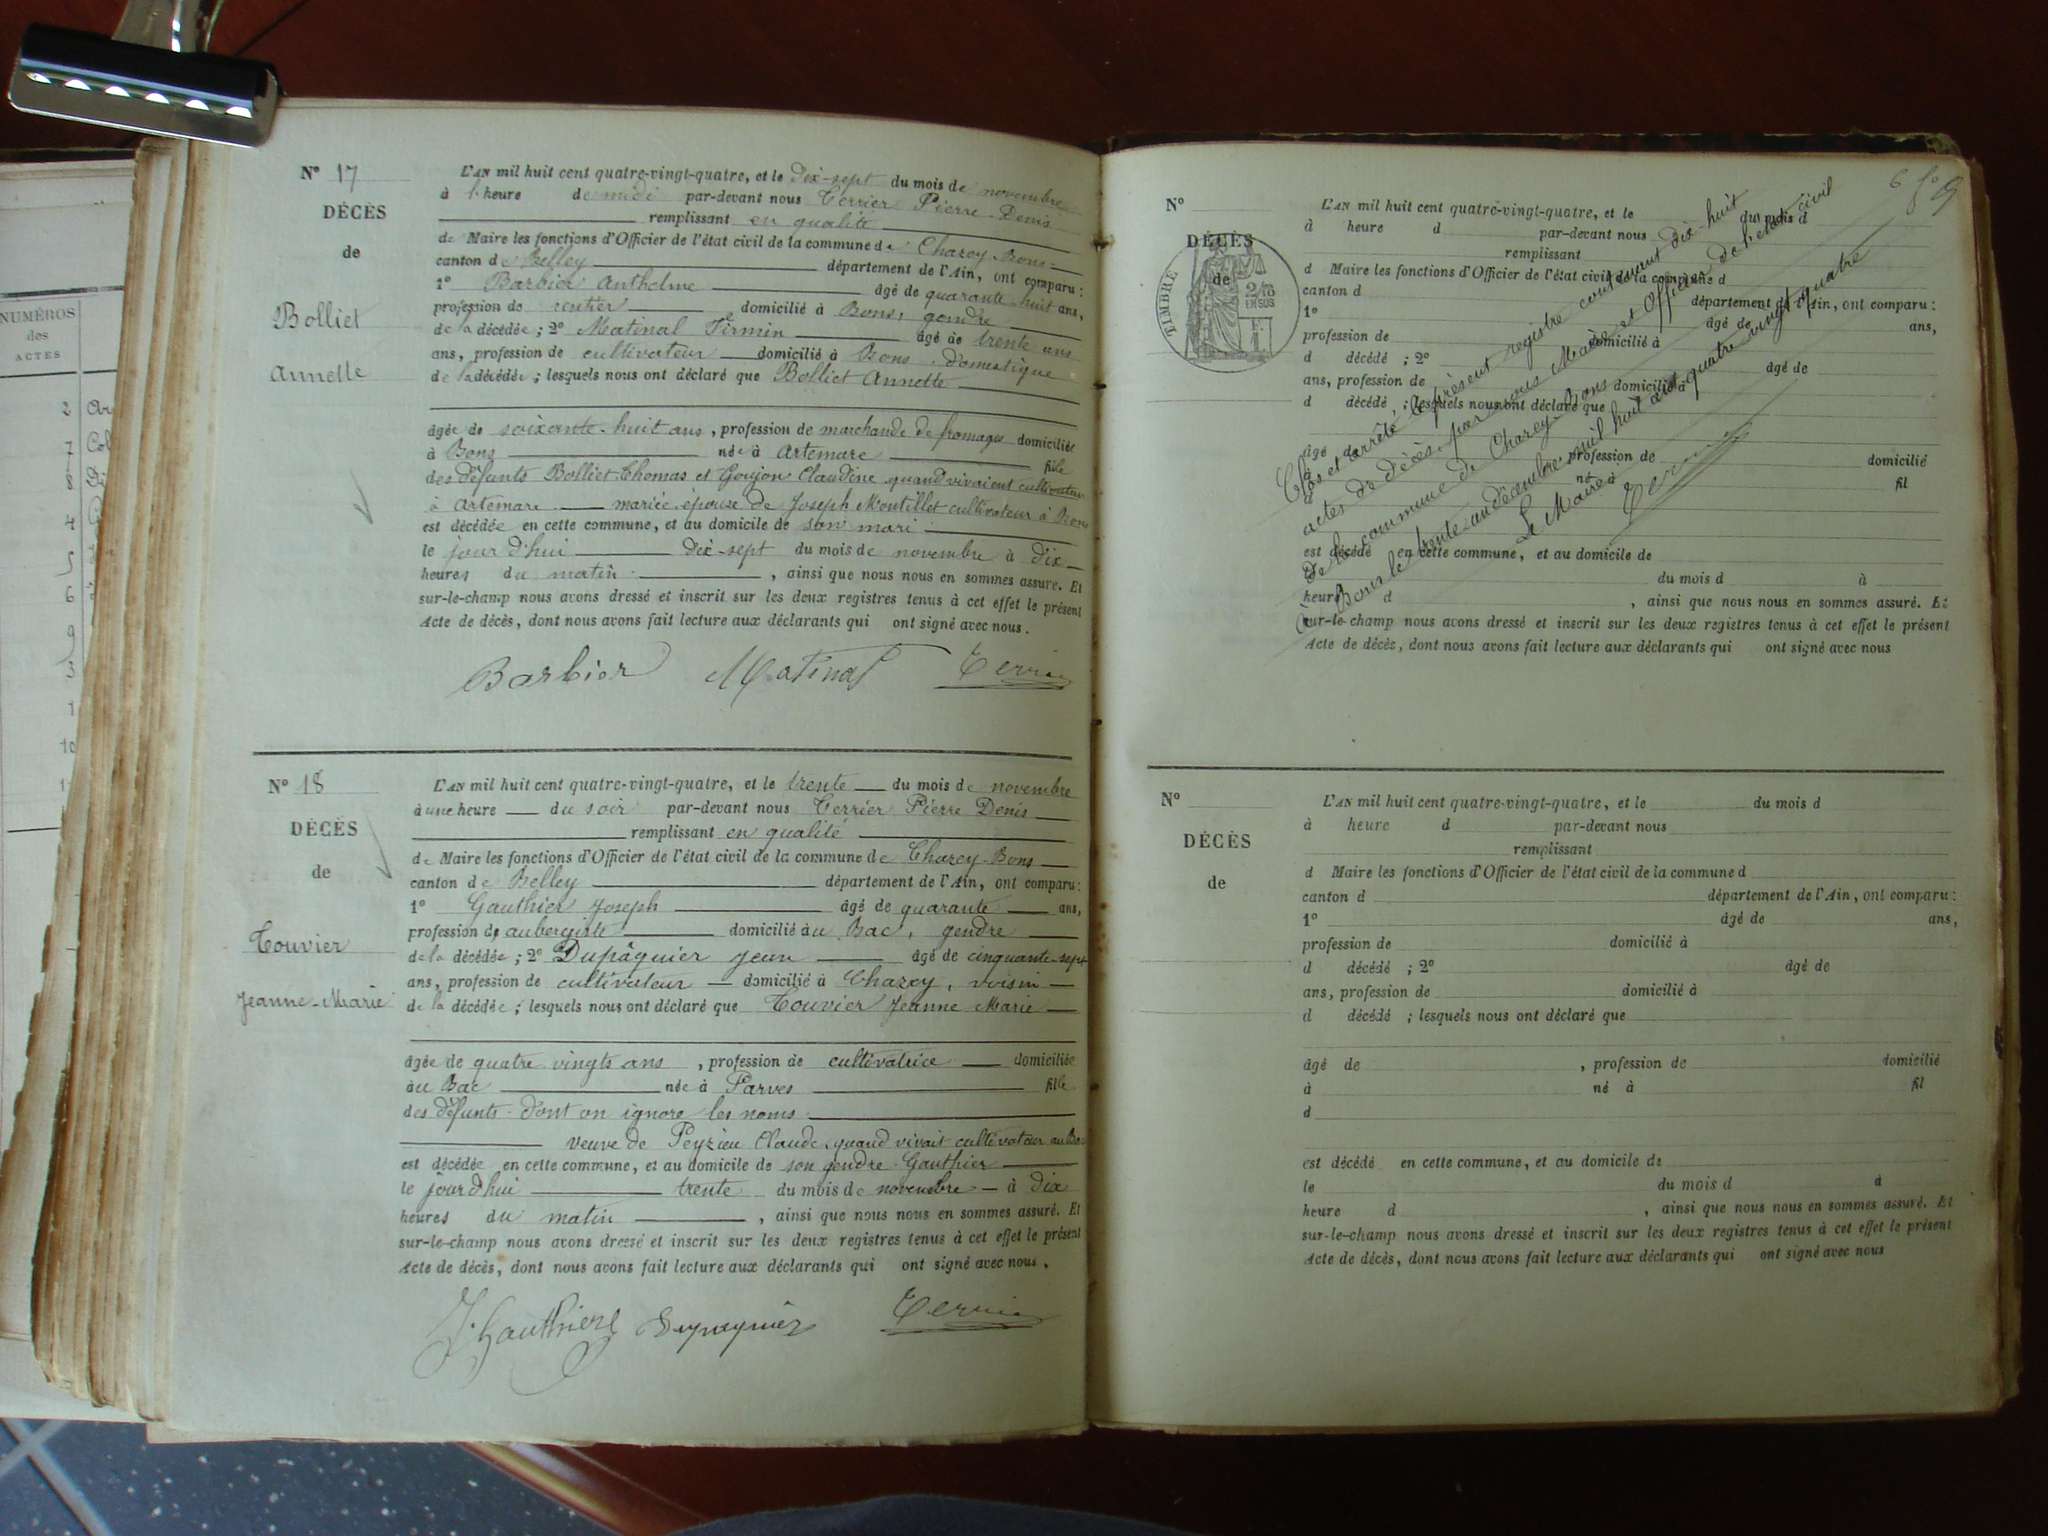 NUMÉROS
des
ACTES
2
7
8
4
5
6
9
3
1
10
Nº 17
DÉCÈS
de
Bolliet
Annette
L'AN mil huit cent quatre-vingt-quatre, et le dix-sept du mois de novembre
à l'heure de midi par-devant nous Terrier Pierre-Denis
remplissant en qualité
de Maire les fonctions d'Officier de l'état civil de la commune de Chazey-Bons
canton de Belley département de l'Ain, ont comparu :
1º Barbier Anthelme âgé de quarante-huit ans,
profession de rentier domicilié à Bons, gendre
de la décédée ; 2º Matinal Firmin âgé de trente ans
ans, profession de cultivateur domicilié à Bons, domestique
de la décédée ; lesquels nous ont déclaré que Bolliet Annette
âgée de soixante-huit ans, profession de marchande de fromages domiciliée
à Bons née à Artemare fille
des défunts Bolliet Thomas et Goujon Claudine, quand vivaient cultivateurs
à Artemare mariée, épouse de Joseph Montillet cultivateur à Bons
est décédée en cette commune, et au domicile de son mari
le jour d'hui dix-sept du mois de novembre à dix
heures du matin, ainsi que nous nous en sommes assuré. Et
sur-le-champ nous avons dressé et inscrit sur les deux registres tenus à cet effet le présent
Acte de décès, dont nous avons fait lecture aux déclarants qui ont signé avec nous.
Barbier Matinal Terrier
Nº 18
DÉCÈS
de
Touvier
Jeanne-Marie
L'AN mil huit cent quatre-vingt-quatre, et le trente du mois de novembre
à une heure du soir par-devant nous Terrier Pierre Denis
remplissant en qualité
de Maire les fonctions d'Officier de l'état civil de la commune de Chazey-Bons
canton de Belley département de l'Ain, ont comparu :
1º Gauthier Joseph âgé de quarante ans,
profession de aubergiste domicilié au Bac, gendre
de la décédée ; 2º Dupâquier Jean âgé de cinquante-sept
ans, profession de cultivateur domicilié à Chazey, voisin
de la décédée ; lesquels nous ont déclaré que Touvier Jeanne Marie
âgée de quatre vingts ans, profession de cultivatrice domiciliée
au Bac née à Parves fille
des défunts dont on ignore les noms
veuve de Peyzieu Claude, quand vivait cultivateur au Bac
est décédée en cette commune, et au domicile de son gendre Gauthier
le jour d'hui trente du mois de novembre à dix
heures du matin, ainsi que nous nous en sommes assuré. Et
sur-le-champ nous avons dressé et inscrit sur les deux registres tenus à cet effet le présent
Acte de décès, dont nous avons fait lecture aux déclarants qui ont signé avec nous.
J. Gauthier Dupaquier Terrier
Nº
DÉCÈS
de
TIMBRE
2/10
EN SUS
L'AN mil huit cent quatre-vingt-quatre, et le du mois d
à heure d par-devant nous
remplissant
d Maire les fonctions d'Officier de l'état civil de la commune d
canton d département de l'Ain, ont comparu :
1º âgé de ans,
profession de domicilié à
d décédé ; 2º âgé de
ans, profession de domicilié à
d décédé ; lesquels nous ont déclaré que
âgé de profession de domicilié
à né à fil
d
est décédé en cette commune, et au domicile de
le du mois d à
heure d , ainsi que nous nous en sommes assuré. Et
sur-le-champ nous avons dressé et inscrit sur les deux registres tenus à cet effet le présent
Acte de décès, dont nous avons fait lecture aux déclarants qui ont signé avec nous
Clos et arrêté, le présent registre contenant dix-huit
actes de décès, par nous Maire et Officier de l'état civil
de la commune de Chazey-Bons
à Bons le trente-un décembre mil huit cent quatre vingt quatre
Le Maire
Terrier
Nº
DÉCÈS
de
L'AN mil huit cent quatre-vingt-quatre, et le du mois d
à heure d par-devant nous
remplissant
d Maire les fonctions d'Officier de l'état civil de la commune d
canton d département de l'Ain, ont comparu :
1º âgé de ans,
profession de domicilié à
d décédé ; 2º âgé de
ans, profession de domicilié à
d décédé ; lesquels nous ont déclaré que
âgé de , profession de domicilié
à né à fil
d
est décédé en cette commune, et au domicile de
le du mois d à
heure d , ainsi que nous nous en sommes assuré. Et
sur-le-champ nous avons dressé et inscrit sur les deux registres tenus à cet effet le présent
Acte de décès, dont nous avons fait lecture aux déclarants qui ont signé avec nous